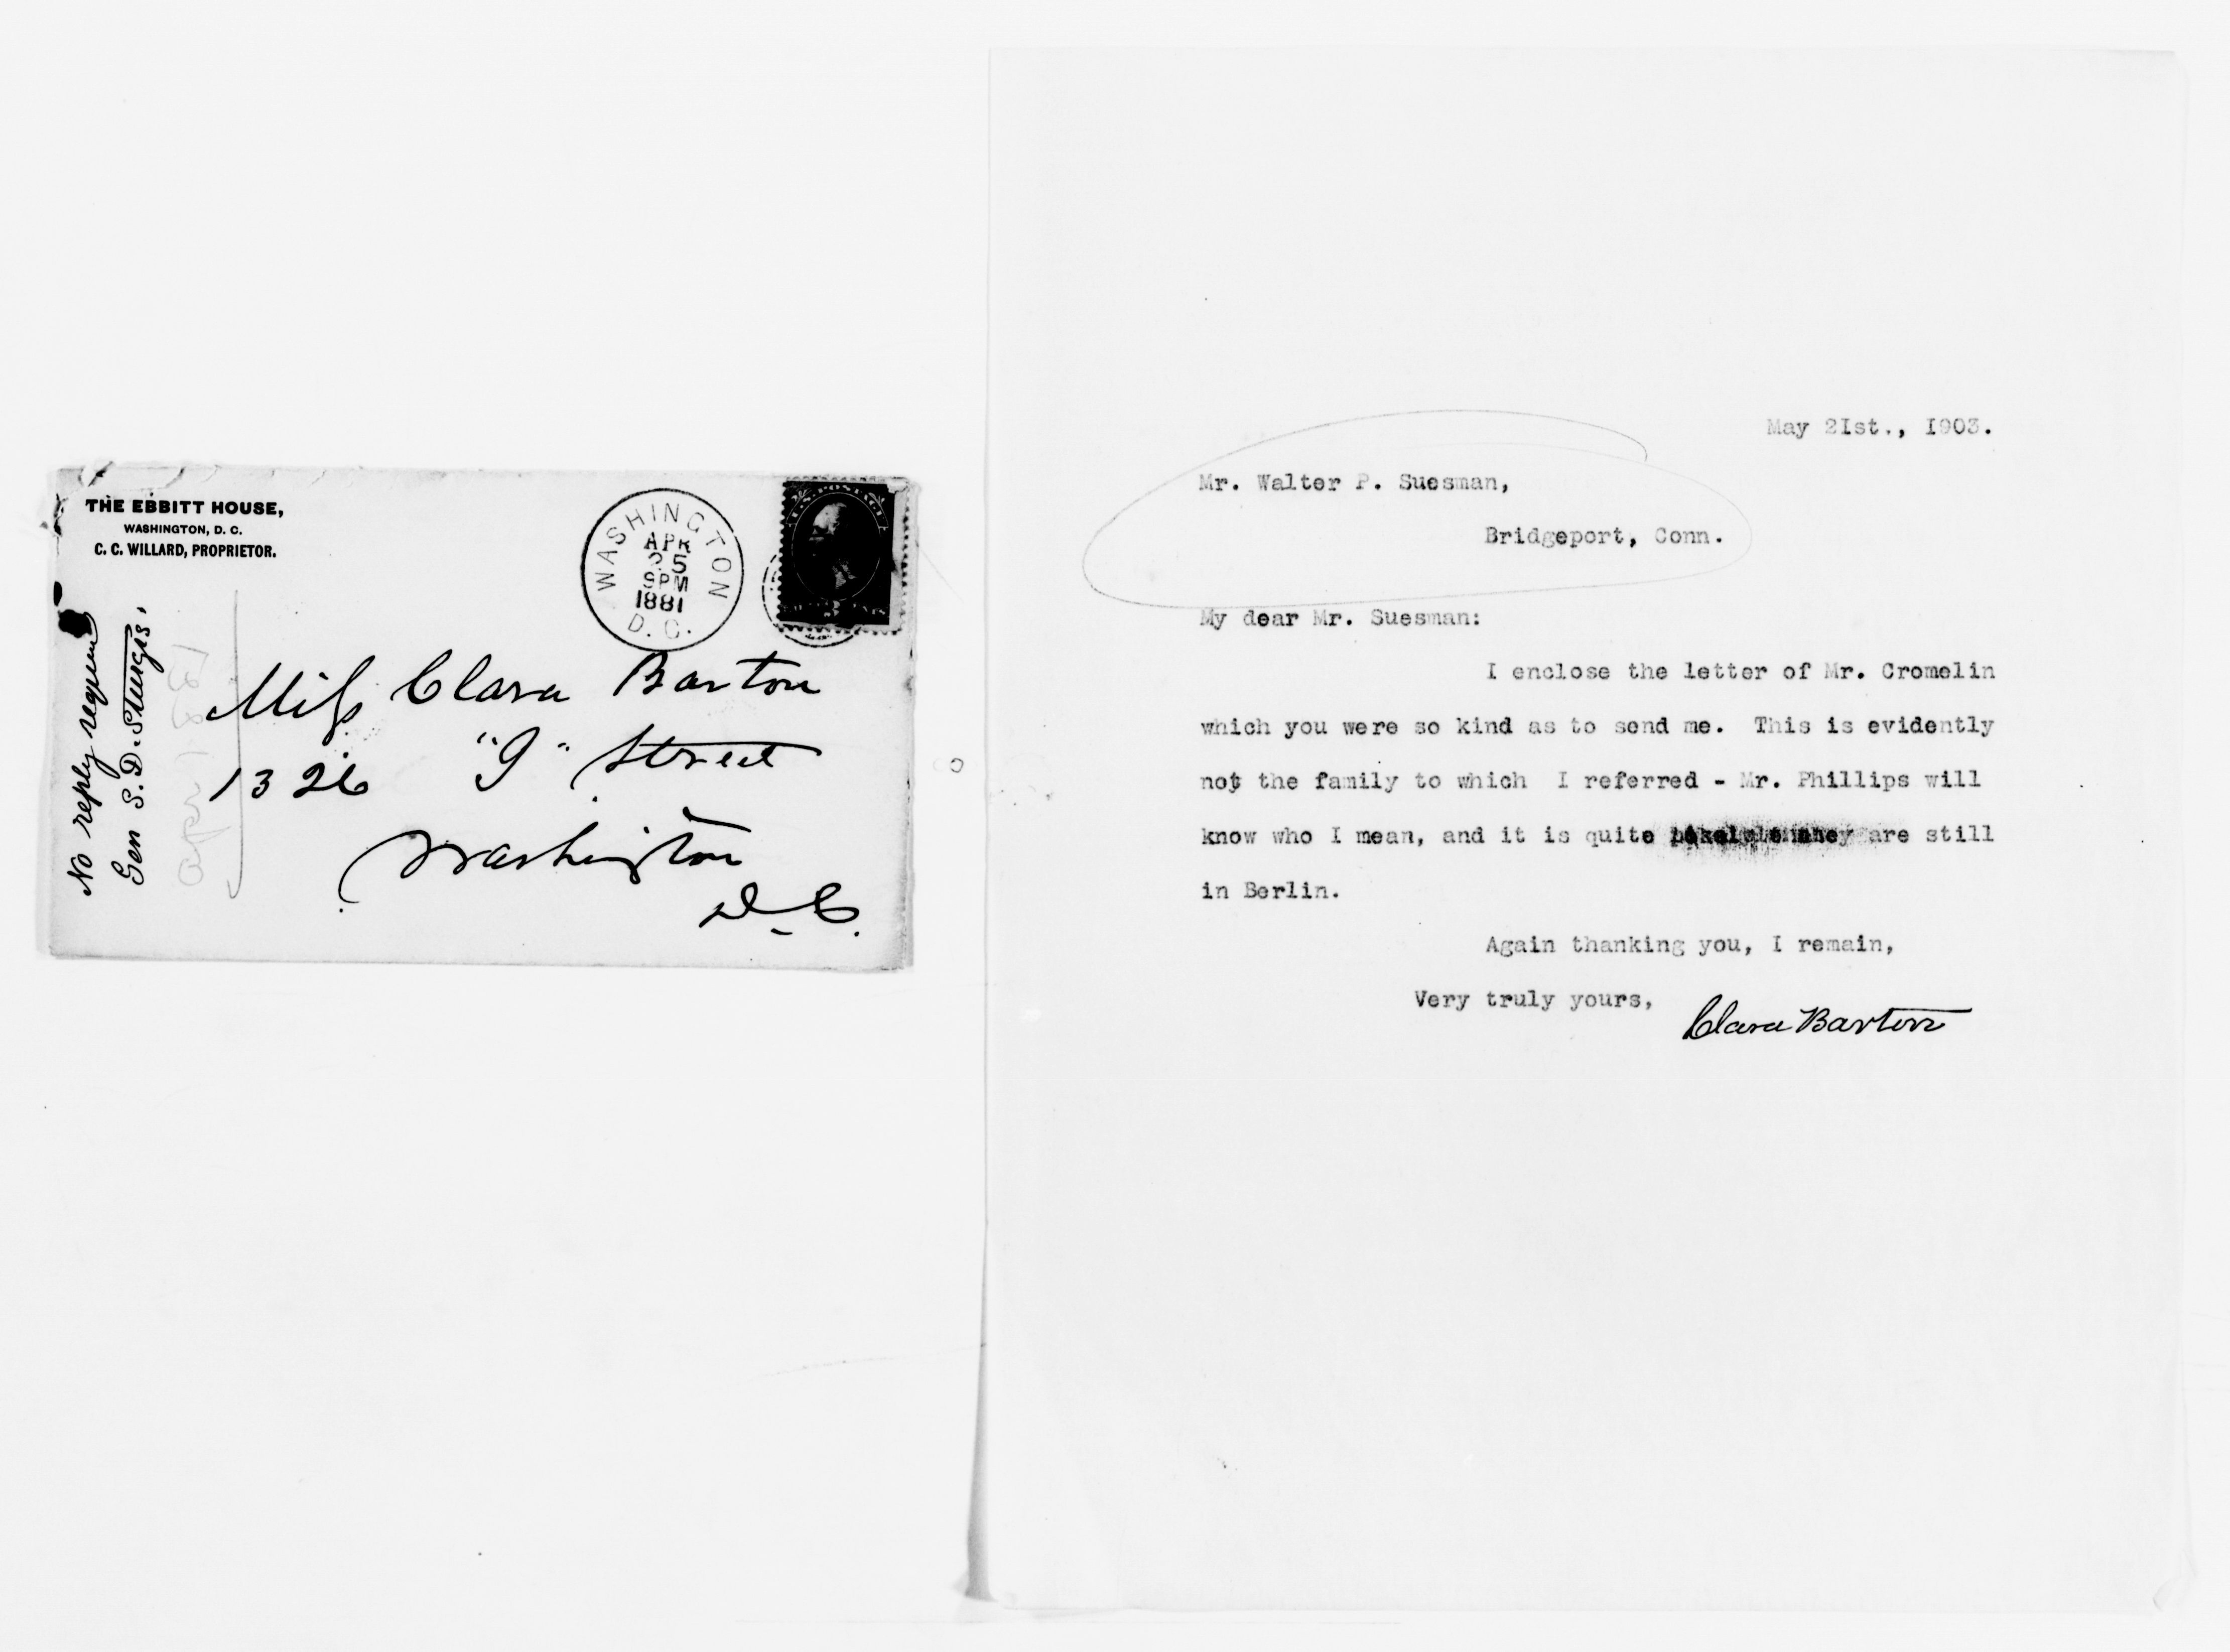 THE EBBITT HOUSE,
WASHINGTON, D. C.
C. C. WILLARD, PROPRIETOR.
WASHINGTON
APR
25
1881
D. C.
No reply
Gen S. D. Sturgis.
Apr 1881
Miss Clara Barton
1326 "I" Street
Washington
D. C.
May 2Ist., I903.
Mr. Walter P. Suesman,
Bridgeport, Conn.
My dear Mr. Suesman:
I enclose the letter of Mr. Cromelin
which you were so kind as to send me. This is evidently
not the family to which I referred - Mr. Phillips will
know who I mean, and it is quite they are still
in Berlin.
Again thanking you, I remain,
Very truly yours,
Clara Barton